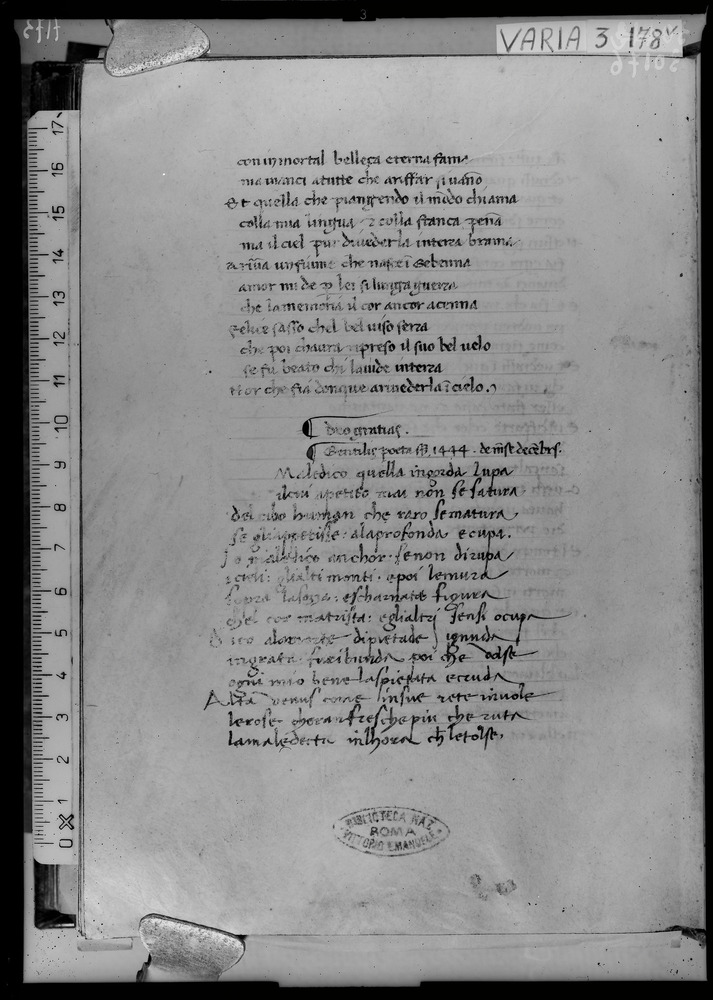 VARIA 3 178v
con immortal belleça eterna fama
ma inanci a tutte che a riffar si vano
Et quella che piangendo il mõdo chiama
colla mia lingua z colla stanca pena
ma il ciel pur di vederla intera brama
a riva un fiume che nasce ĩ Gebenna
amor mi de p lei si lunga guerra
che la memoria il cor ancor acenna
felice sasso chel bel viso serra
che poi chaura ripreso il suo bel velo
se fu beato chi la vide interra
Hor che fia donque arivederla ĩ cielo.
Deo gratias.
Gentilis poeta 1444. de mẽse decẽbrs.
Maledico quella ingorda lupa
il cui apetito mai non se satura
del cibo human che raro se matura
ala profonda e cupa.
anchor se non dirupa
monti e poi le mura
sopra figura
cor matrista: e glialtri sensi ocupa
dipietade ignuda
ingrata furibunda poi che volse
ogni mio bene laspietata e cruda
venus come insue rete involse
le rose cheran fresche piu che ruta
lamaledecta in lhora ch le tolse.
BIBLIOTECA NAZ.
ROMA
VITTORIO EMANUELE
0 1 2 3 4 5 6 7 8 9 10 11 12 13 14 15 16 17